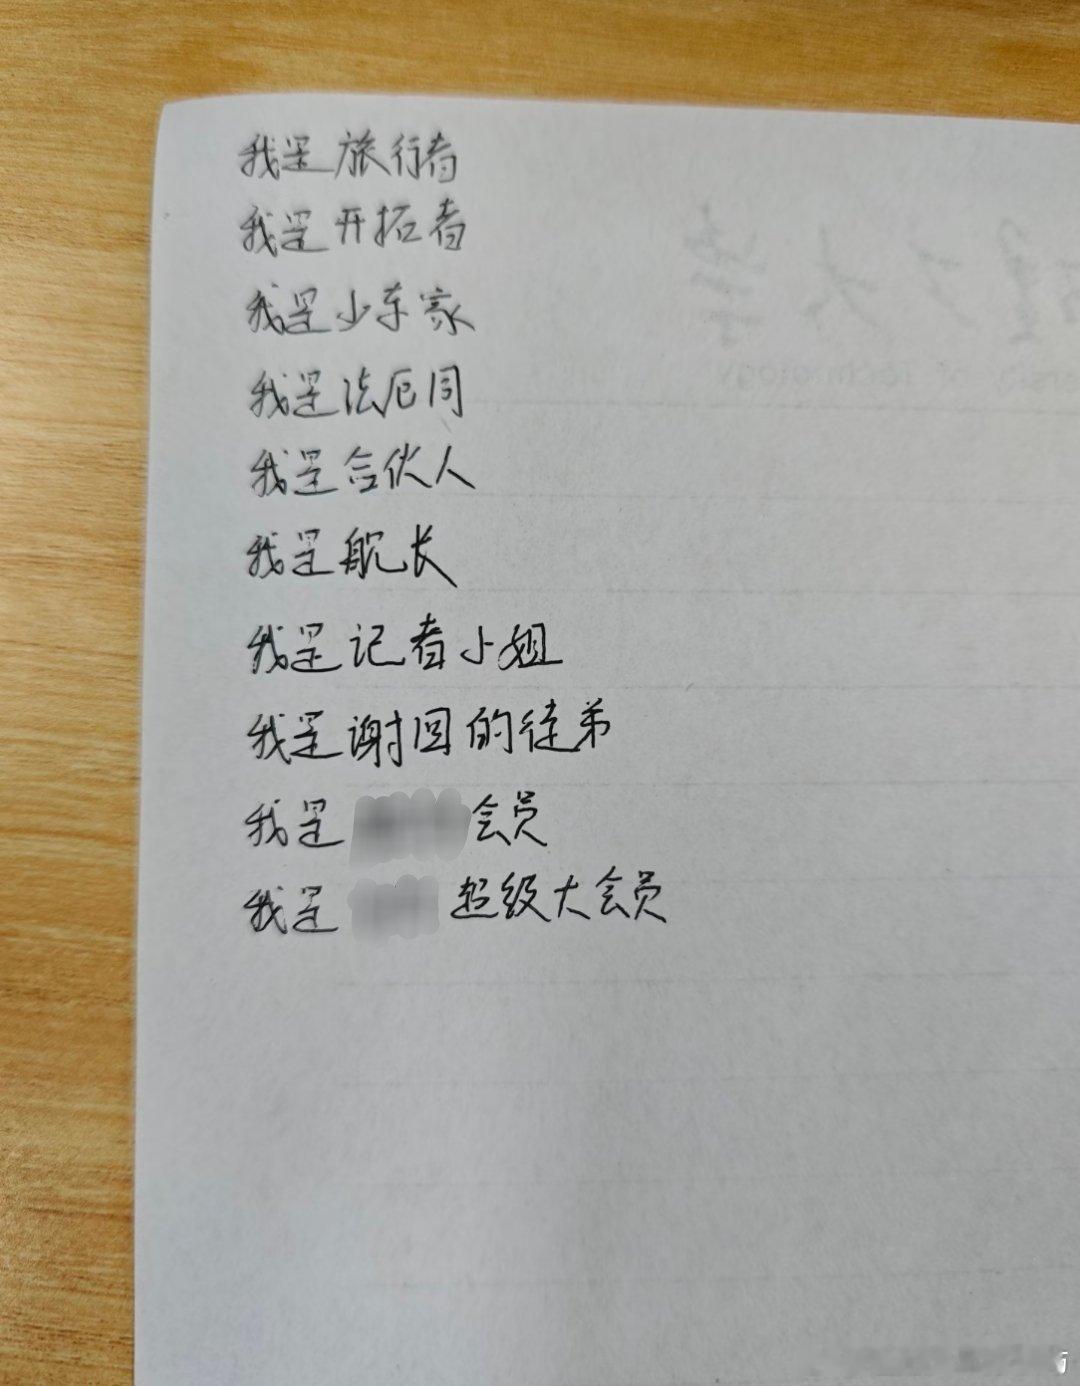 我是旅行者
我是开拓者
我是少东家
我是法厄同
我是合伙人
我是舰长
我是记者小姐
我是谢回的徒弟
我是 会员
我是 超级大会员